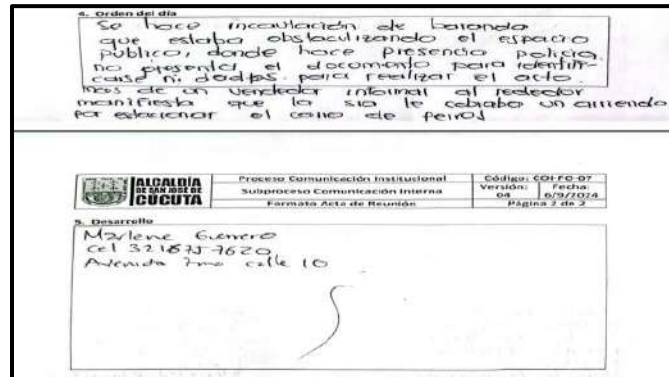 4. Orden del día
Se hace incautación de baranda
que estaba obstaculizando el espacio
publico, donde hace presencia policia
no presenta el documento para identifi-
carse ni dadtos para realizar el acto.
mas de un vendedor informal al rededor
manifiesta que la sra le cobraba un arriendo
por estacionar el carro de perros
ALCALDÍA
DE SAN JOSÉ DE
CÚCUTA
Proceso Comunicación Institucional
Código: COI-FO-07
Subproceso Comunicación Interna
Versión: 04
Fecha: 6/9/2024
Formato Acta de Reunión
Página 2 de 2
5. Desarrollo
Marlene Guerrero
cel 321875-7620
Avenida 7ma calle 10